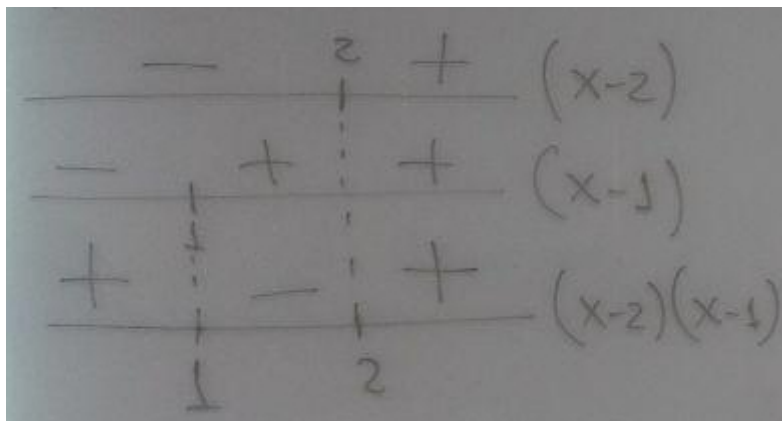 2
− + (x-2)
− + + (x-1)
1
+ − + (x-2)(x-1)
1 2